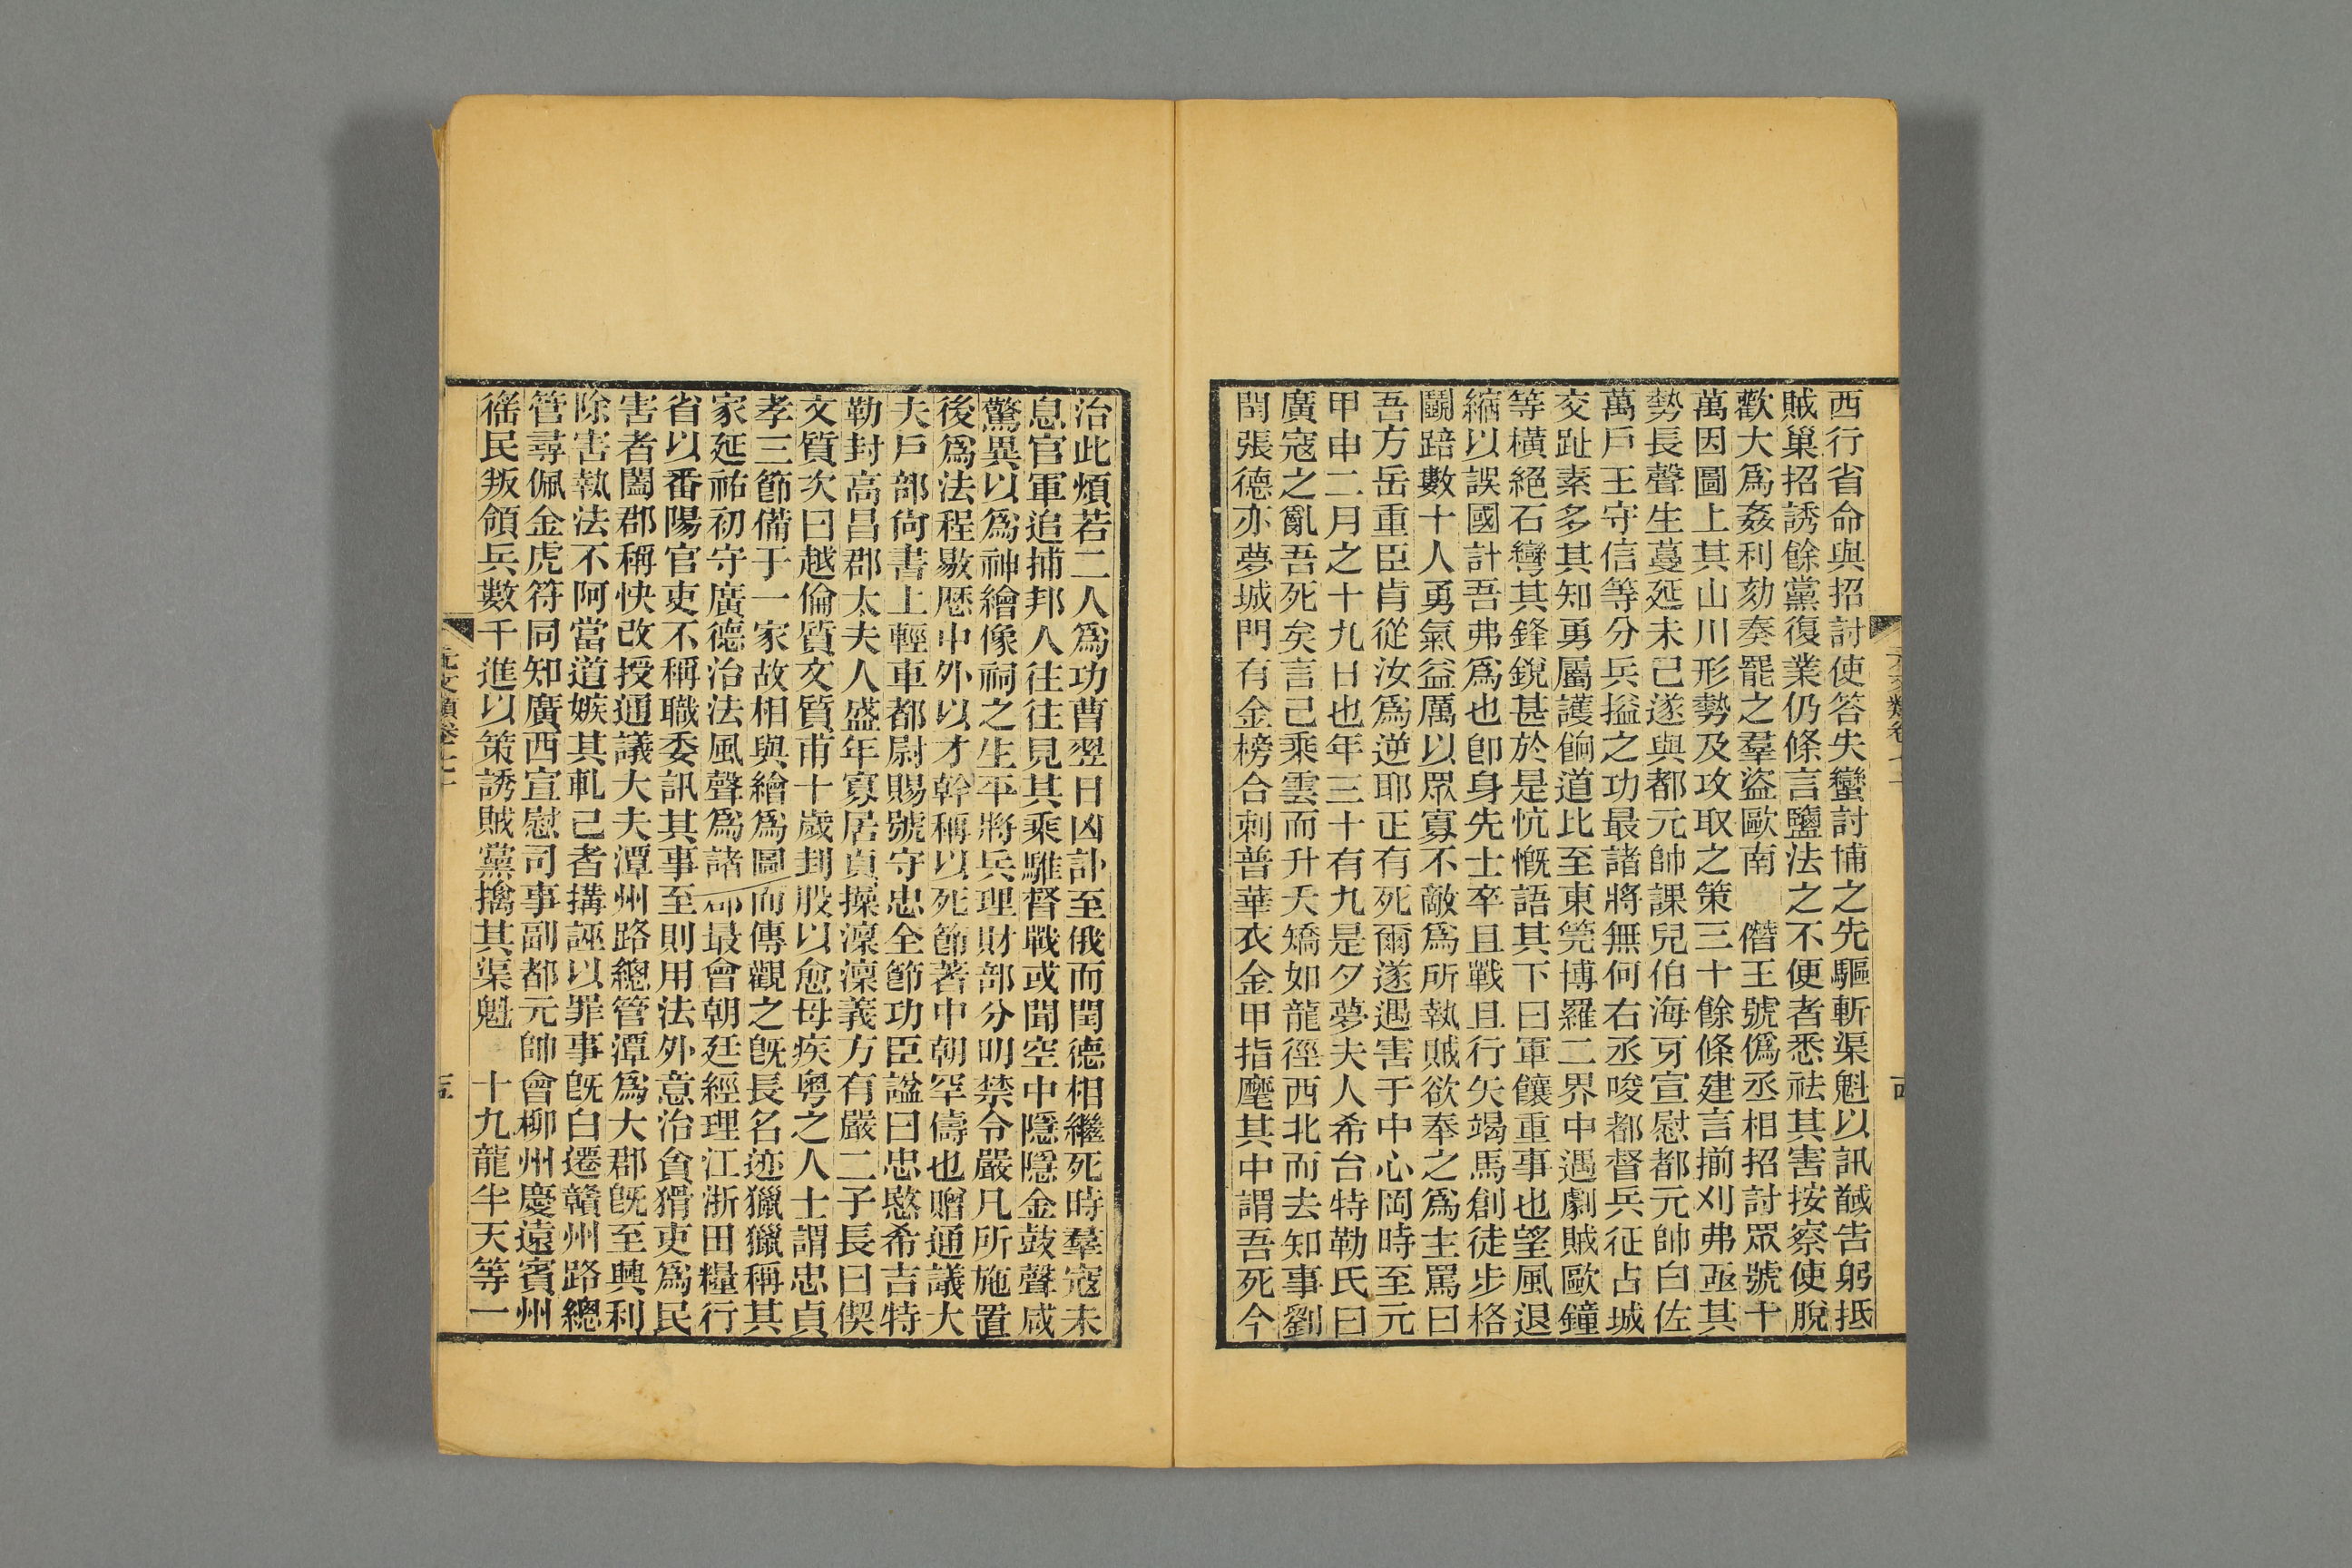 西行省命與招討使答失蠻討捕之先驅斬渠魁以訊馘告躬抵
賊巢招誘餘黨復業仍條言鹽法之不便者悉祛其害按察使脫
歡大為姦利劾奏罷之羣盜歐南　僭王號偽丞相招討眾號十
萬因圖上其山川形勢及攻取之策三十餘條建言揃刈弗亟其
勢長聲生蔓延未已遂與都元帥課兒伯海牙宣慰都元帥白佐
萬戶王守信等分兵搤之功最諸將無何右丞唆都督兵征占城
交趾素多其知勇屬護餉道比至東筦博羅二界中遇劇賊歐鐘
等橫絕石彎其鋒銳甚於是忼慨語其下曰軍饟重事也望風退
縮以誤國計吾弗為也卽身先士卒且戰且行矢竭馬創徒步格
鬭踣數十人勇氣益厲以眾寡不敵為所執賊欲奉之為主罵曰
吾方岳重臣肯從汝為逆耶正有死爾遂遇害于中心岡時至元
甲申二月之十九日也年三十有九是夕夢夫人希台特勒氏曰
廣寇之亂吾死矣言已乘雲而升天矯如龍徑西北而去知事劉
閏張德亦夢城門有金榜合刺普華衣金甲指麾其中謂吾死今
元文類卷七十
治此煩若二人為功曹翌日凶訃至俄而閏德相繼死時羣寇未
息官軍追捕邦人往往見其乘騅督戰或聞空中隱隱金鼓聲咸
驚異以為神繪像祠之生平將兵理財部分明禁令嚴凡所施置
後為法程敭歷中外以才幹稱以死節著中朝罕儔也贈通議大
夫戶部尙書上輕車都尉賜號守忠全節功臣諡曰忠愍希吉特
勒封高昌郡太夫人盛年寡居貞操凜凜義方有嚴二子長曰偰
文質次曰越倫質文質甫十歲刲股以愈母疾粵之人士謂忠貞
孝三節備于一家故相與繪為圖而傳觀之旣長名迹獵獵稱其
家延祐初守廣德治法風聲為諸郡最會朝廷經理江浙田糧行
省以番陽官吏不稱職委訊其事至則用法外意治貪猾吏為民
害者闔郡稱快改授通議大夫潭州路總管潭為大郡旣至興利
除害執法不阿當道嫉其軋己者搆誣以罪事旣白遷贛州路總
管尋佩金虎符同知廣西宣慰司事副都元帥會柳州慶遠賓州
徭民叛領兵數千進以策誘賊黨擒其渠魁　十九龍半天等一
元文類卷七十